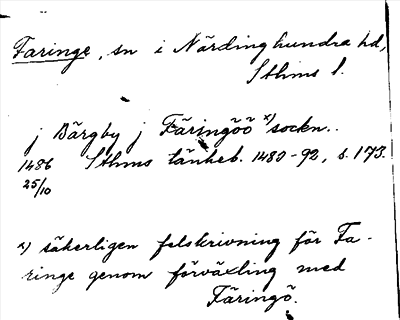 Faringe, sn i Närdinghundra hd,
Sthms l.
j Bärgby j Färingöö x) sockn..
1486 Sthms tänkeb. 1480-92, s. 173.
25/10
x) säkerligen felskrivning för Fa-
ringe genom förväxling med
Färingö.